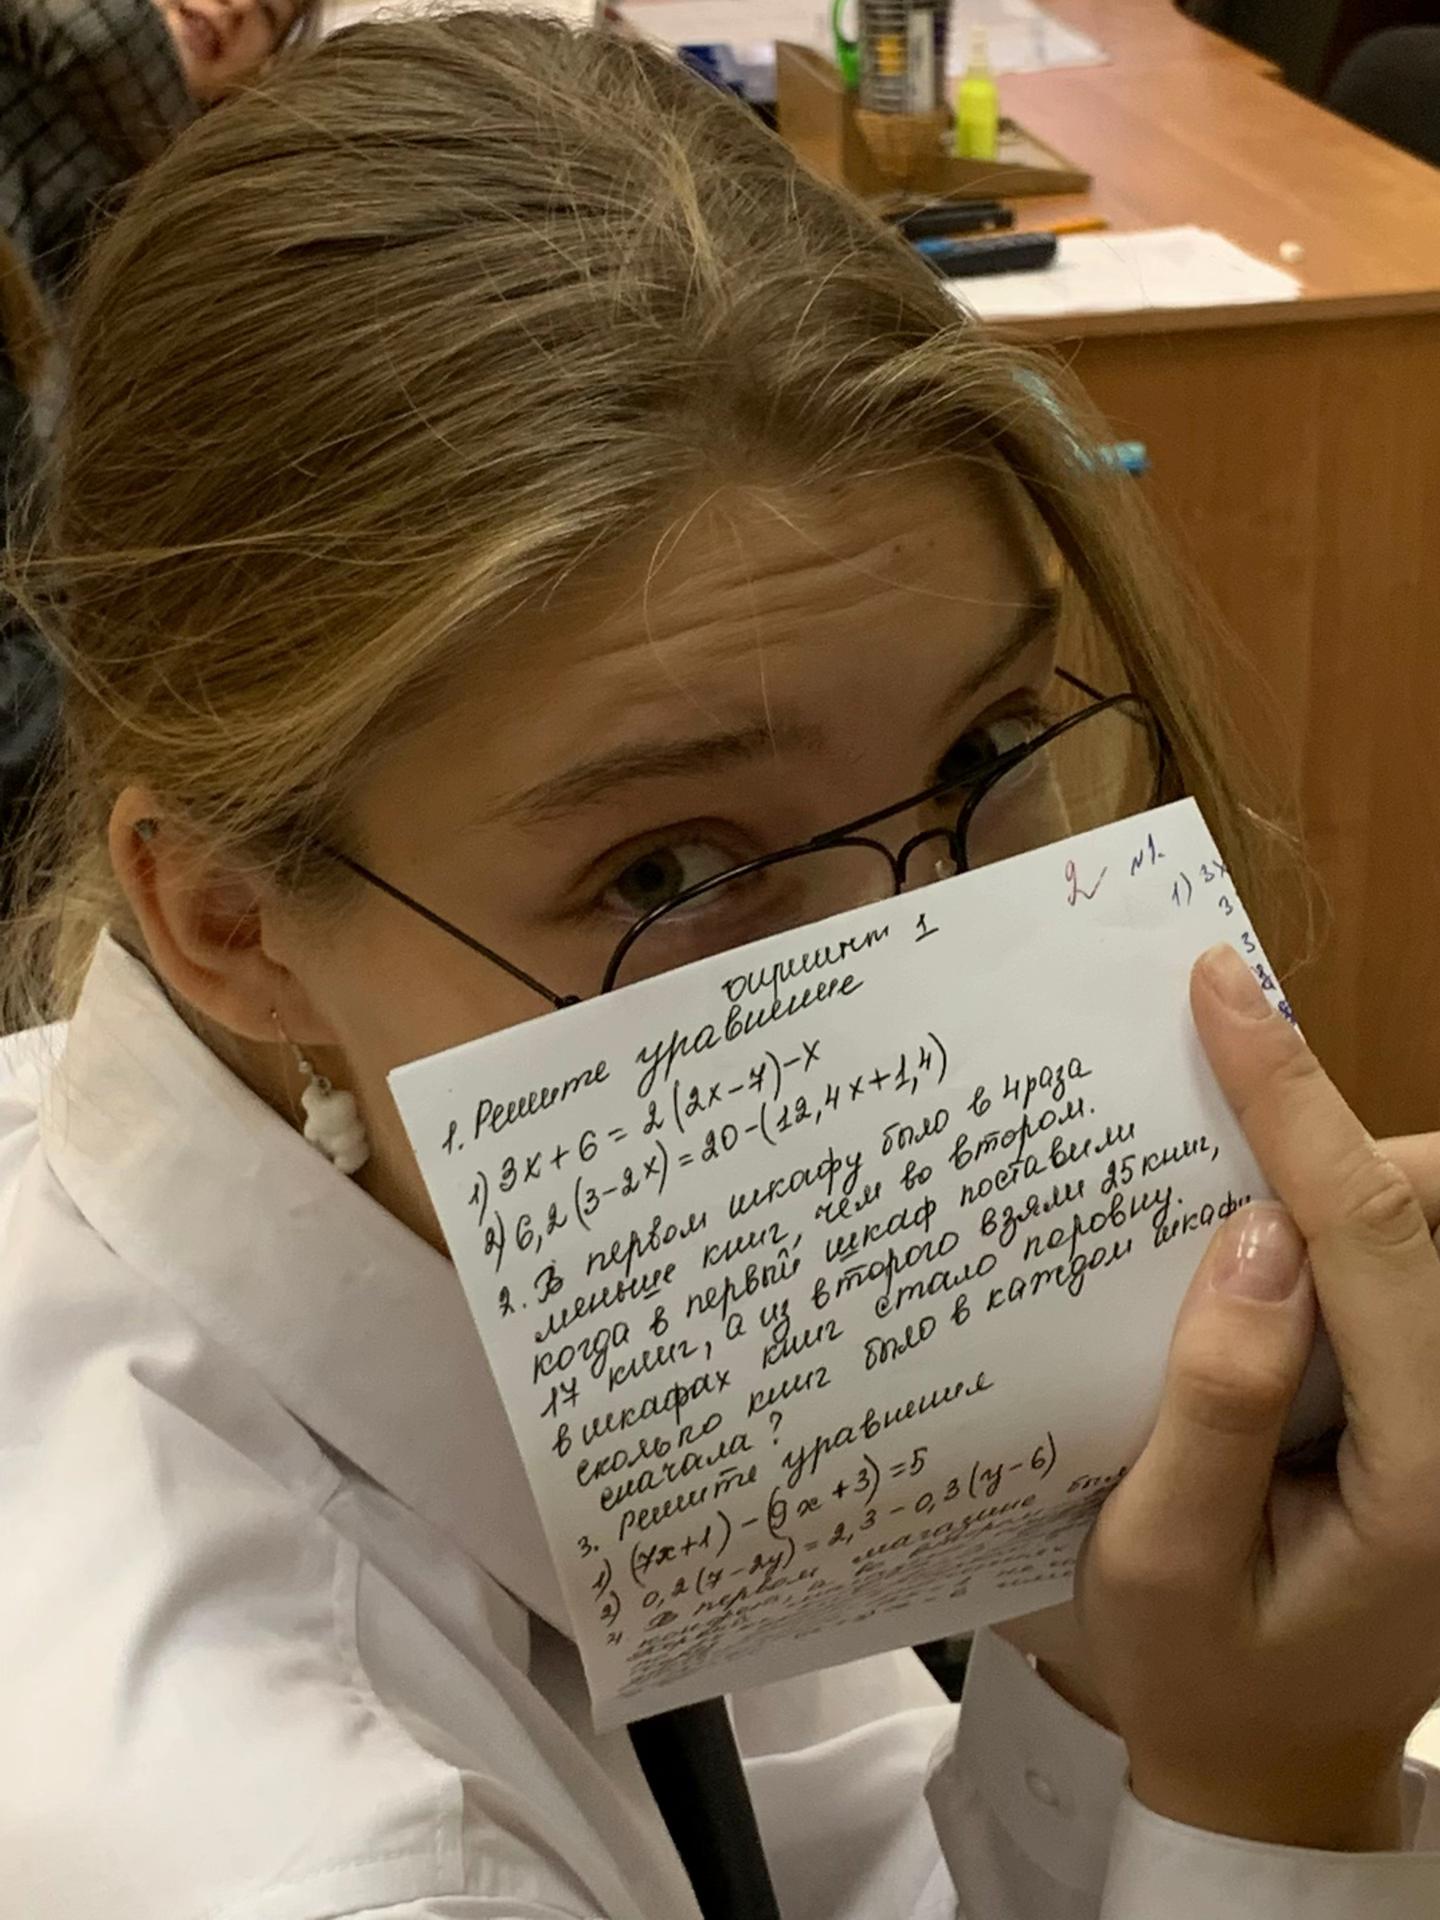 вариант 1
2 №1.
1) 3x
3
3
1. Решите уравнение
1) 3x + 6 = 2(2x - 7) - x
2) 6,2(3-2x) = 20-(12,4x+1,4)
2. В первом шкафу было в 4 раза
меньше книг, чем во втором.
когда в первый шкаф поставили
17 книг, а из второго взяли 25 книг,
в шкафах книг стало поровну.
сколько книг было в каждом шкафу
сначала?
3. решите уравнения
1) (7x+1) - (9x + 3) = 5
2) 0,2(7-2y) = 2,3 - 0,3(y-6)
4 В первом магазине было